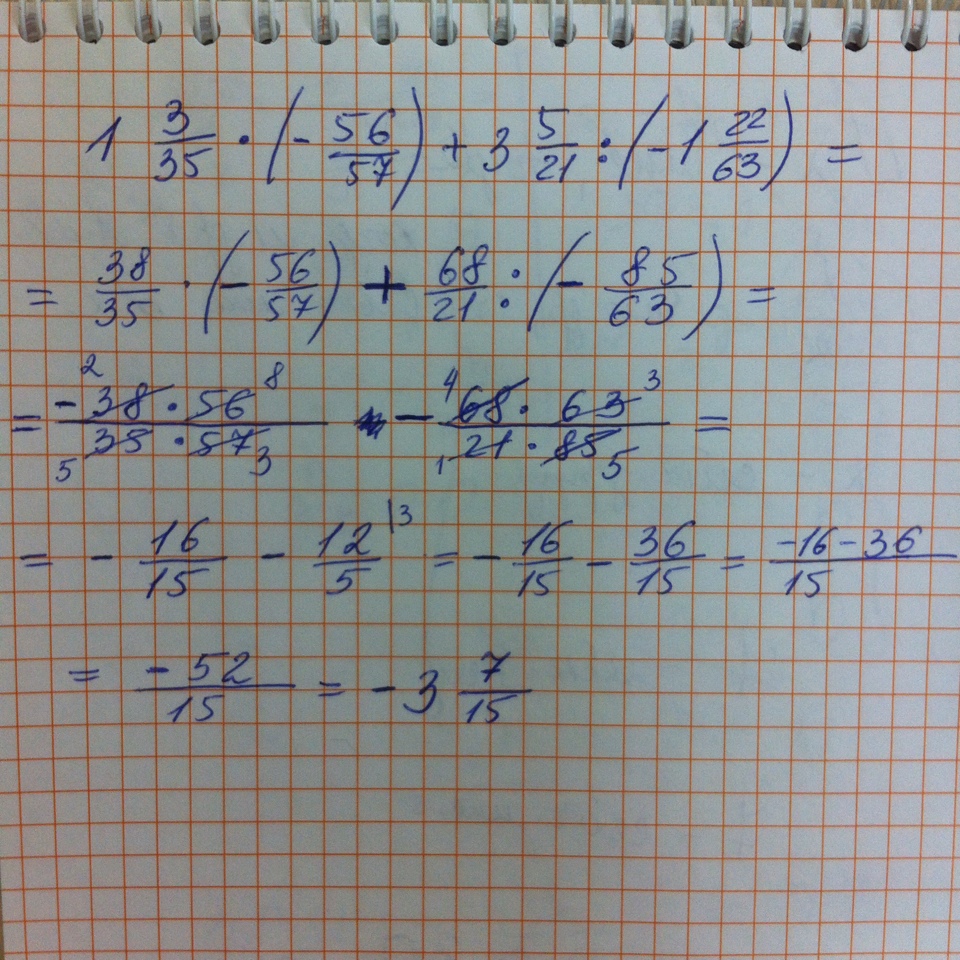 1 3/35 · (- 56/57) + 3 5/21 : (-1 22/63) =
= 38/35 · (- 56/57) + 68/21 : (- 85/63) =
= -38 2 · 56 8 / 35 5 · 57 3 - 4 68 · 63 3 / 1 21 · 85 5 =
= - 16/15 - 12/5 |3 = - 16/15 - 36/15 = -16-36/15
= -52/15 = -3 7/15